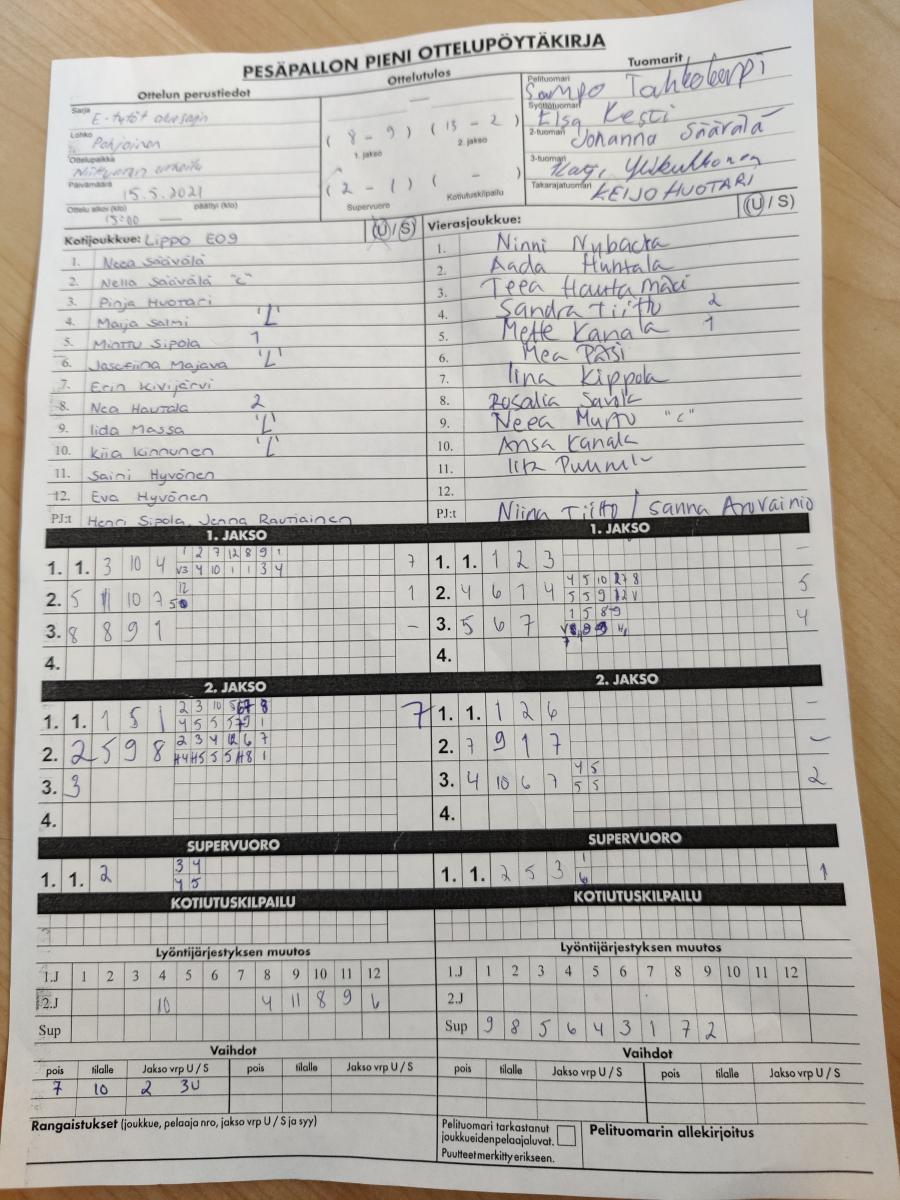 PESÄPALLON PIENI OTTELUPÖYTÄKIRJA
Ottelun perustiedot
Ottelutulos
Tuomarit
Sarja
E-tytöt
Lohko
Pohjoinen
Ottelupaikka
Päivämäärä
15.5.2021
Ottelu alkoi (klo) päättyi (klo)
13:00
( 8 - 9 ) ( 13 - 2 )
1. jakso 2. jakso
( 2 - 1 ) ( - )
Supervuoro Kotiutuskilpailu
Pelituomari
Sampo
Syöttötuomari
Elsa Kesti
2-tuomari
Johanna Säärälä
3-tuomari
Takarajatuomari
KEIJO HUOTARI
Kotijoukkue: Lippo E09 U/S
1. Neea Säävälä
2. Nella Säävälä "C"
3. Pinja Huotari
4. Maija Salmi "L"
5. Minttu Sipola 1
6. Josefiina Majava "L"
7. Erin Kivijärvi
8. Nea Hautala 2
9. Iida Massa "L"
10. Kiia Kinnunen "L"
11. Saini Hyvönen
12. Eva Hyvönen
PJ:t Henri Sipola, Jenna Rautiainen
Vierasjoukkue: U/S
1. Ninni Nybacka
2. Aada Huhtala
3. Teea Hautamäki
4. Sandra Tiitto 2
5. Mette Kanala 1
6. Mea Päsi
7. Iina Kippola
8. Rosalia Savola
9. Neea Murto "C"
10. Ansa Kanala
11.
12.
PJ:t Niina Tiitto / Sanna Arovainio
1. JAKSO
1. 1. 3 10 4 1 2 7 12 8 9 1 7
V3 4 10 1 1 3 4
2. 5 11 10 7 12 1
3. 8 8 9 1 -
4.
1. JAKSO
1. 1. 1 2 3 -
2. 4 6 1 4 4 5 10 2 7 8 5
5 5 9 12 V
3. 5 6 7 1 5 8 9 4
4.
2. JAKSO
1. 1. 1 5 1 2 3 10 5 7
2. 2 5 9 8 2 3 4 12 6 7
3. 3
4.
2. JAKSO
1. 1. 1 2 6 -
2. 7 9 1 7 -
3. 4 10 6 7 4 5 2
5 5
4.
SUPERVUORO
1. 1. 2 3 4
4 5
SUPERVUORO
1. 1. 2 5 3 1 1
6
KOTIUTUSKILPAILU
KOTIUTUSKILPAILU
Lyöntijärjestyksen muutos
1.J 1 2 3 4 5 6 7 8 9 10 11 12
2.J 10 4 11 8 9 6
Sup
Lyöntijärjestyksen muutos
1.J 1 2 3 4 5 6 7 8 9 10 11 12
2.J
Sup 9 8 5 6 4 3 1 7 2
Vaihdot
pois tilalle Jakso vrp U / S pois tilalle Jakso vrp U / S
7 10 2 3U
Vaihdot
pois tilalle Jakso vrp U / S pois tilalle Jakso vrp U / S
Rangaistukset (joukkue, pelaaja nro, jakso vrp U / S ja syy)
Pelituomari tarkastanut
joukkueiden pelaajaluvat.
Puutteet merkitty erikseen.
Pelituomarin allekirjoitus